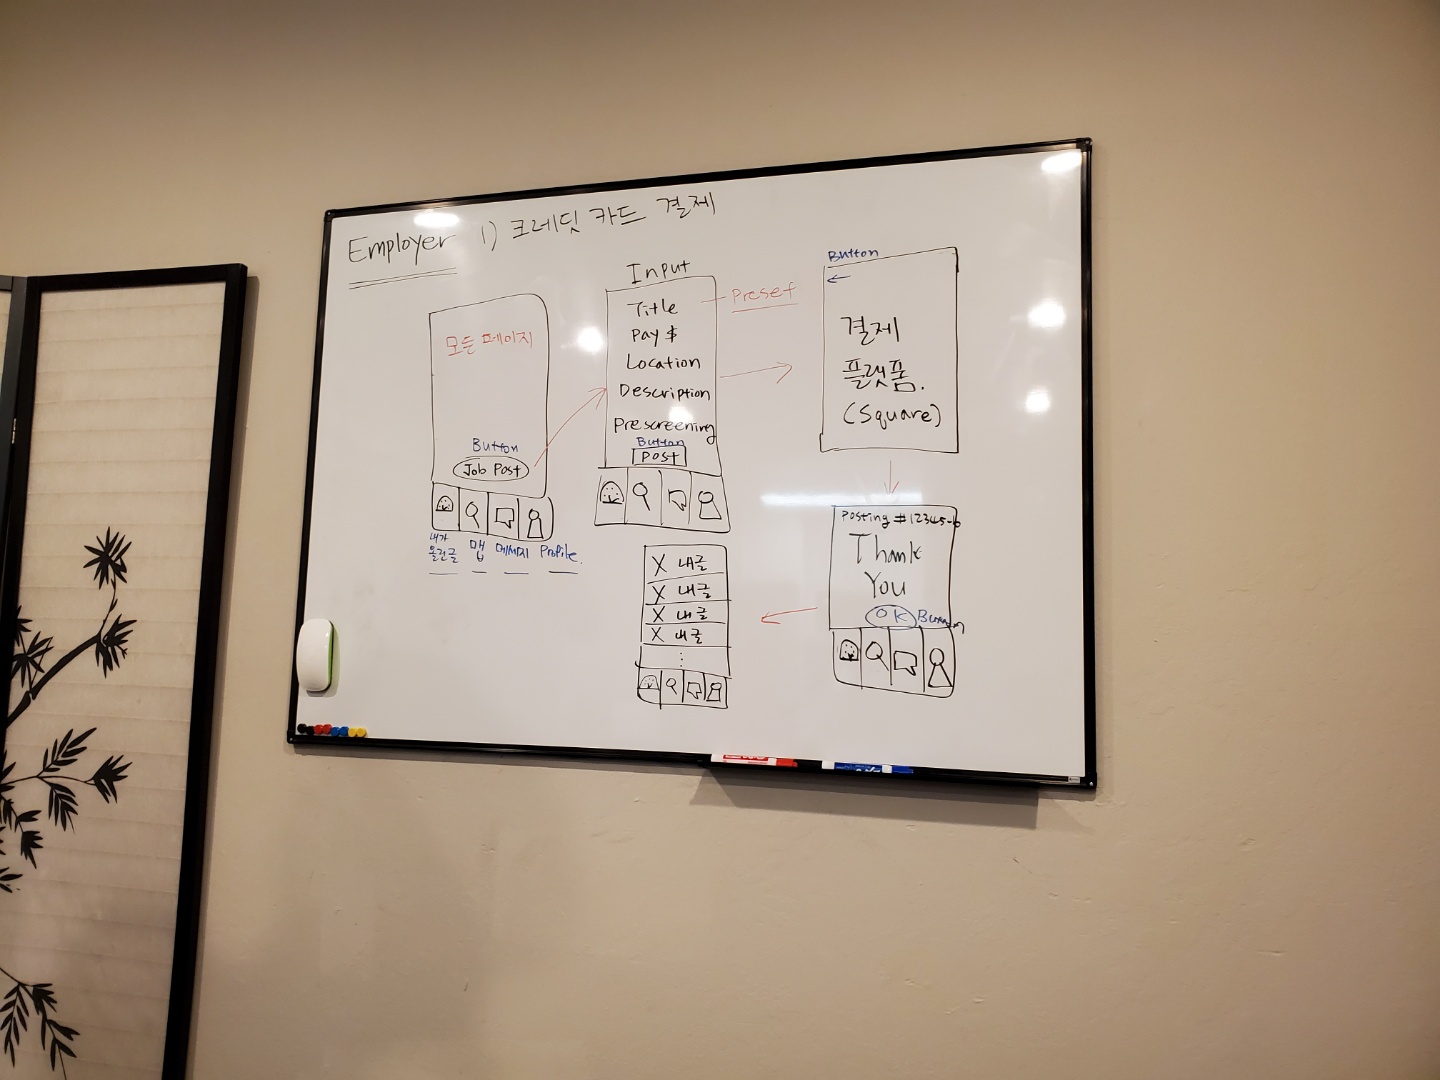 Employer 1) 크레딧 카드 결제
모든 페이지
Button
Job Post
내가
올린글
맵
메세지
Profile.
Input
Title
Preset
Pay $
Location
Description
Prescreening
Button
Post
Button
결제
플랫폼.
(Square)
Posting #12345-6
Thank
You
OK Button
X 내글
X 내글
X 내글
X 내글